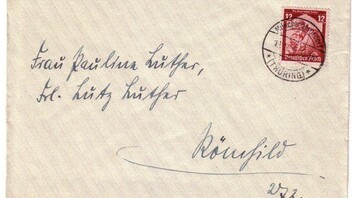 12 12
Deutsches Reich
(THÜRING)
Frau Pauline Luther,
Frl. Lutz Luther
Römhild